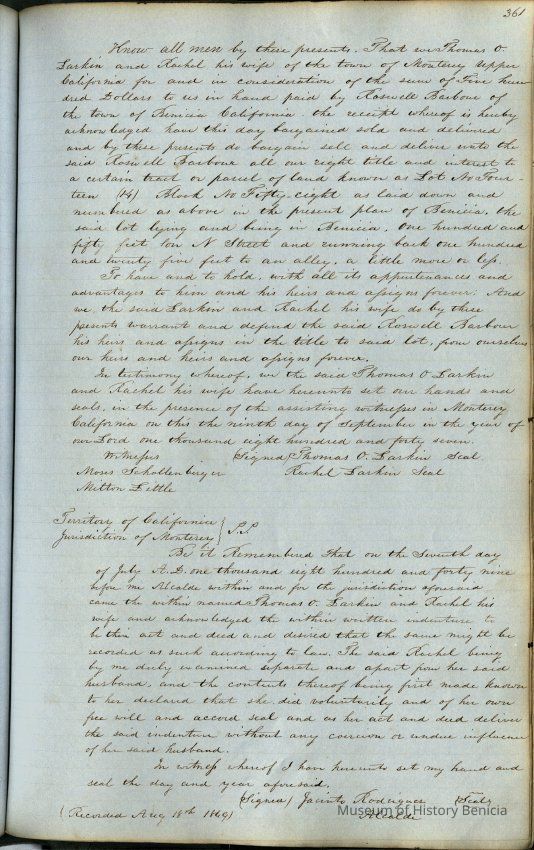 361
Know all men by these presents. That we Thomas O
Larkin and Rachel his wife of the town of Monterey Upper
California for and in consideration of the sum of Five hun
dred Dollars to us in hand paid by Roswell Barbour of
the town of Benicia California the receipt whereof is hereby
acknowledged have this day bargained sold and delivered
and by these presents do bargain sell and deliver unto the
said Roswell Barbour all our right title and interest to
a certain tract or parcel of land known as Lot No Four-
teen (14) Block No Fifty-eight as laid down and
numbered as above in the present plan of Benicia, the
said lot lying and being in Benicia. One hundred and
fifty feet on N Street and running back one hundred
and twenty five feet to an alley, a little more or less.
To have and to hold, with all its appurtenances and
advantages to him and his heirs and assigns forever. And
we, the said Larkin and Rachel his wife do by these
presents warrant and defend the said Roswell Barbour
his heirs and assigns in the title to said lot, from ourselves
our heirs and heirs and assigns forever.
In testimony whereof, we the said Thomas O Larkin
and Rachel his wife have hereunto set our hands and
seals, in the presence of the assisting witnesses in Monterey
California on this the ninth day of September in the year of
our Lord one thousand eight hundred and forty seven.
Witnesses Signed Thomas O. Larkin Seal
Moses Schallenberger Rachel Larkin Seal
Milton Little
Territory of California } S.S.
Jurisdiction of Monterey
Be it Remembered that on the Seventh day
of July A.D. one thousand eight hundred and forty nine
before me Alcalde within and for the jurisdiction aforesaid
came the within named Thomas O. Larkin and Rachel his
wife and acknowledged the within written indenture to
be their act and deed and desired that the same might be
recorded as such according to law. The said Rachel being
by me duly examined separate and apart from her said
husband, and the contents thereof being first made known
to her declared that she did voluntarily and of her own
free will and accord seal and as her act and deed deliver
the said indenture without any coercion or undue influence
of her said husband.
In witness whereof I have hereunto set my hand and
seal the day and year aforesaid.
(Signed) Jacinto Rodrigues (Seal)
(Recorded Aug 18th 1849) Alcalde
Museum of History Benicia